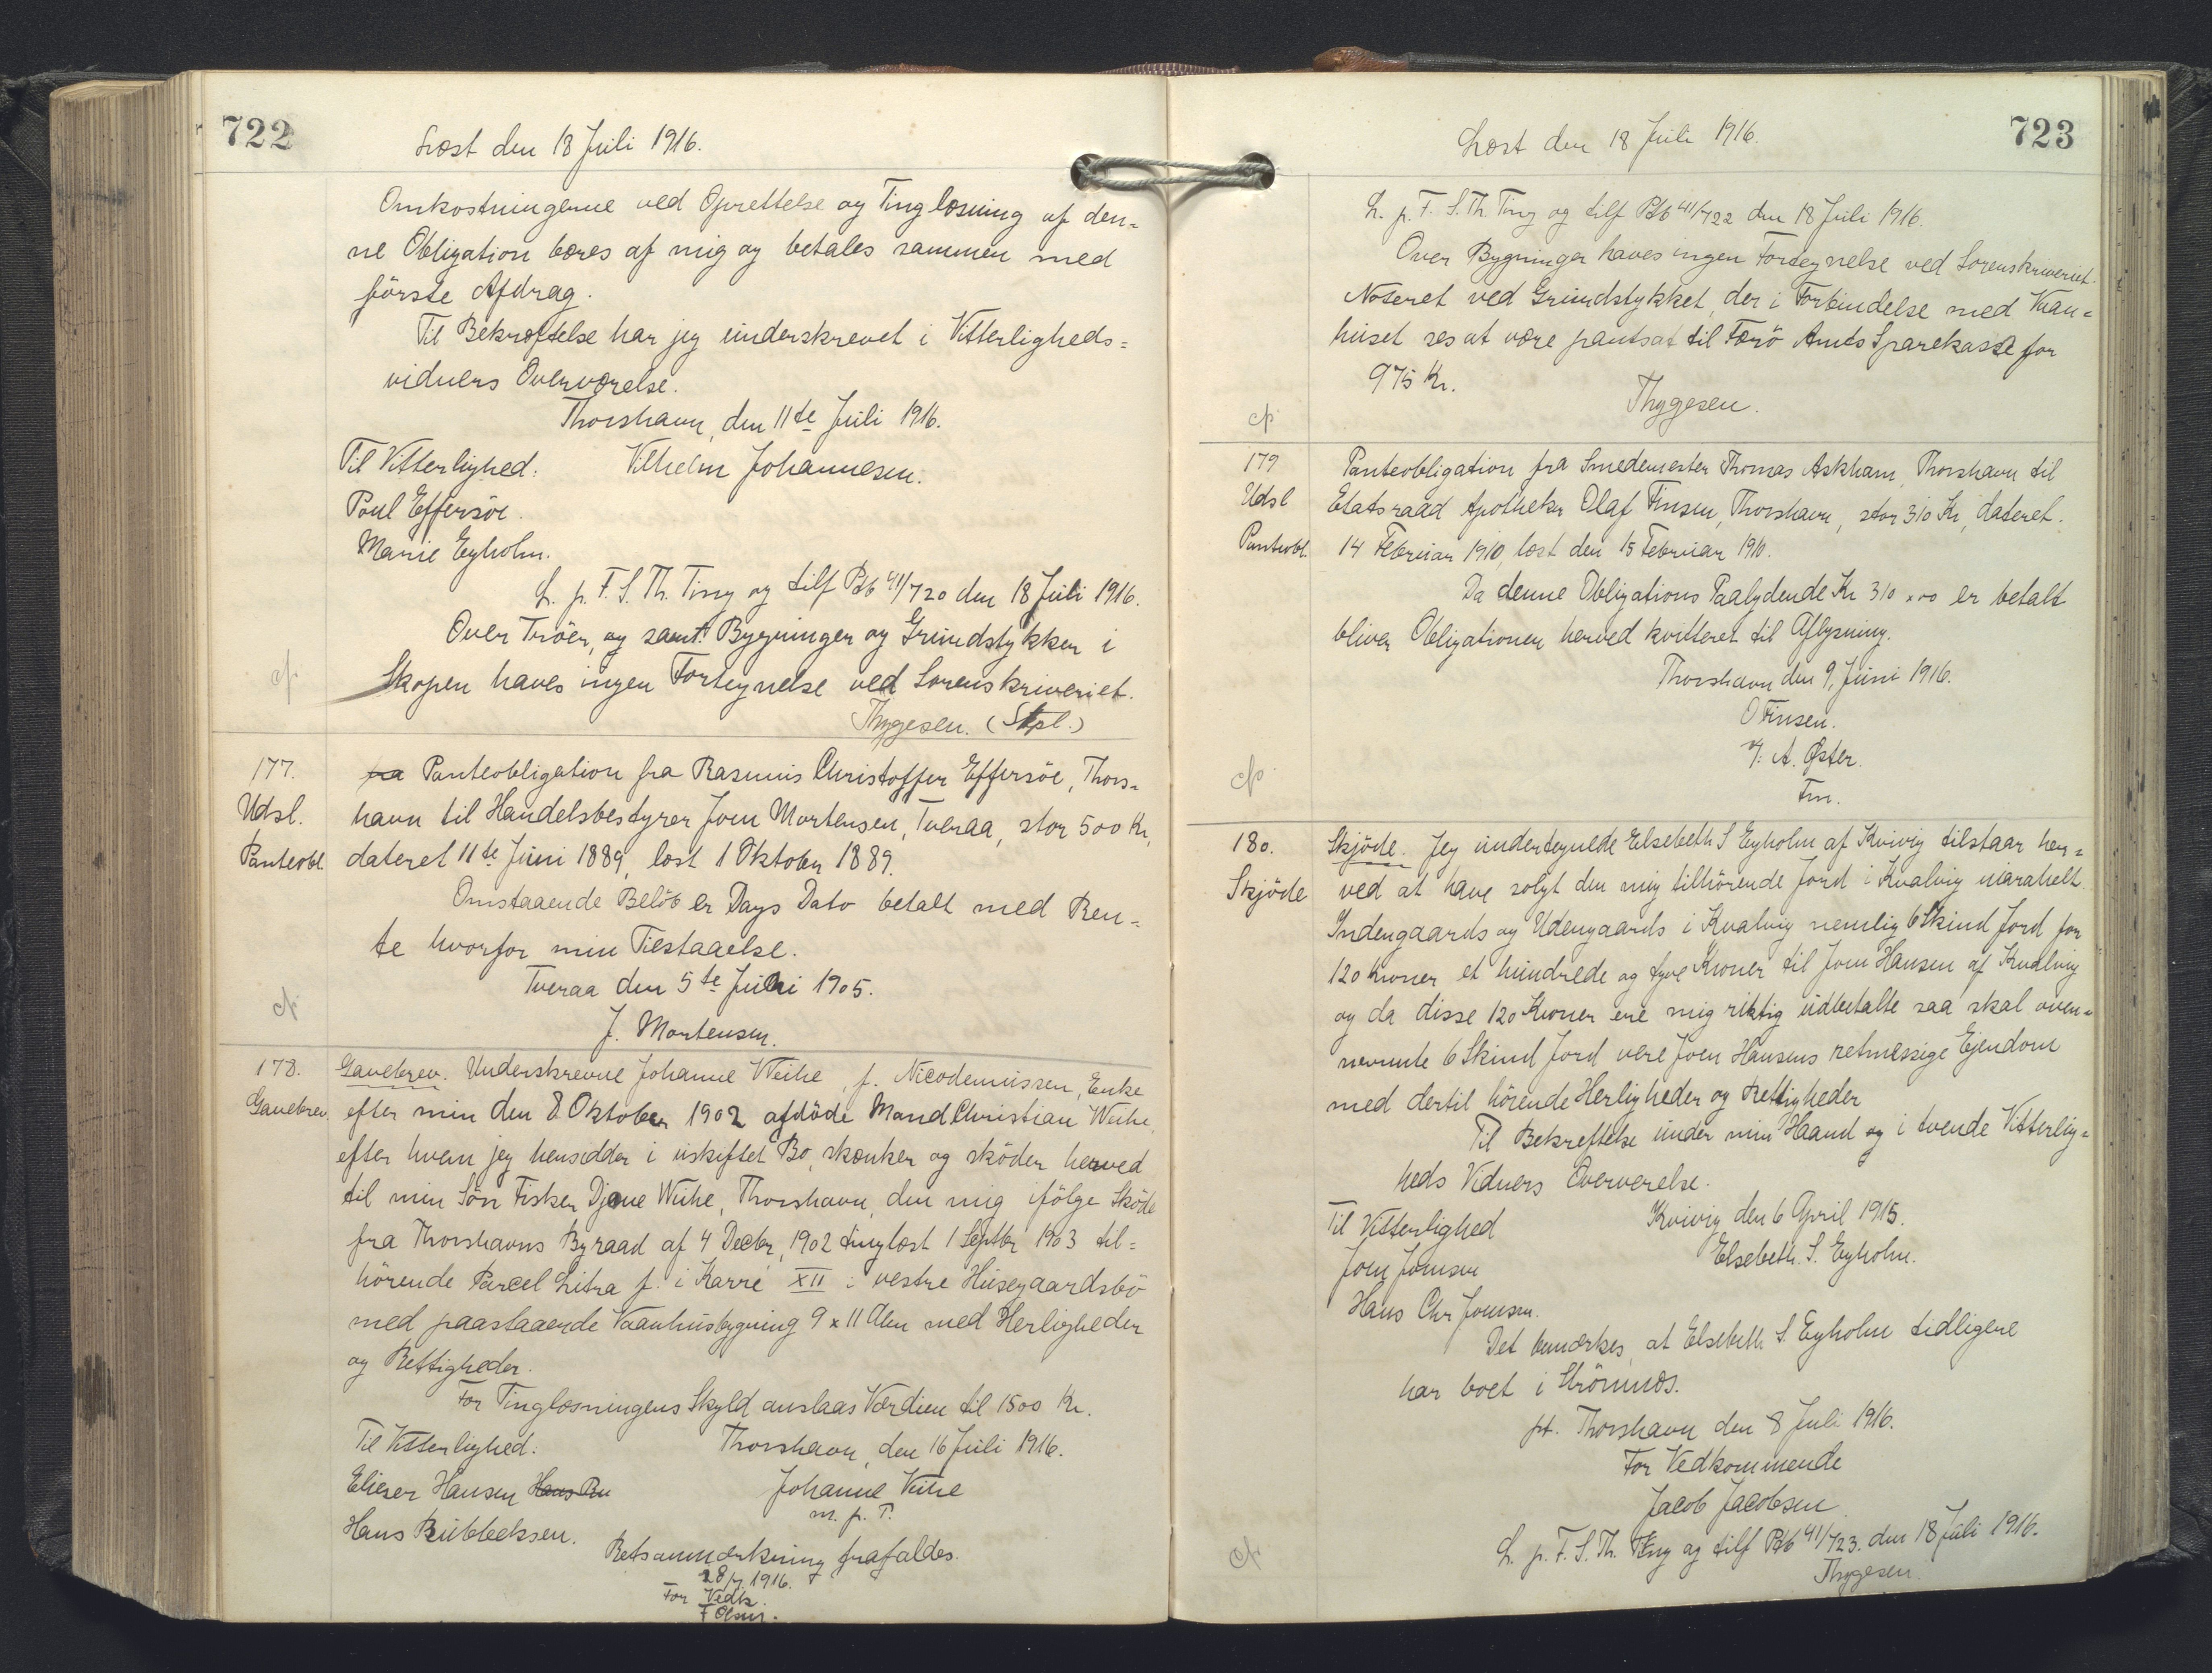 722
Læst den 18 Juli 1916.
Omkostningerne ved Oprettelse og Tinglæsning af den=
ne Obligation bæres af mig og betales sammen med
förste Afdrag.
Til Bekræftelse har jeg underskrevet i Vitterligheds=
vidners Overværelse.
Thorshavn, den 11te Juli 1916.
Til Vitterlighed: Vilhelm Johannesen.
Poul Effersöe.
Marie Eyholm.
L. p. F. S. Th. Ting og tilf Pdb 41/720 den 18 Juli 1916.
Over Tröer, og samt Bygninger og Grundstykker i
Skopen haves ingen Fortegnelse ved Sorenskriveriet.
Thygesen. (Stpl.)
177. fra Panteobligation fra Rasmus Christoffer Effersöe, Thors=
Udsl. havn til Handelsbestyrer Joen Mortensen, Tveraa, stor 500 Kr,
Panteobl. dateret 11te Juni 1889, læst 1 Oktober 1889.
Omstaaende Belöb er Dags Dato betalt med Ren=
te hvorfor min Tilstaaelse.
Tveraa den 5te Juli 1905.
J. Mortensen.
178. Gavebrev. Underskrevne Johanne Weihe, f. Nicodemussen, Enke
Gavebrev. efter min den 8 Oktober 1902 afdöde Mand Christian Weihe,
efter hvem jeg hensidder i uskiftet Bo, skænker og sköder herved
til min Sön Fisker Djone Weihe, Thorshavn, den mig ifölge Sköde
fra Thorshavns Byraad af 4 Decbr. 1902 tinglæst 1 Septbr 1903 til=
hörende Parcel Litra f. i Karré XII i vestre Húsegaardsbö
med paastaaende Vaanhusbygning 9 x 11 Alen med Herligheder
og Rettigheder.
For Tinglæsningens Skyld anslaas Værdien til 1500 Kr.
Til Vitterlighed: Thorshavn, den 16 Juli 1916.
Elieser Hansen Hans Ru Johanne Weihe
Hans Rubbeksen. m. p. P.
Retsanmærkning frafaldes.
28/7. 1916.
For Vedk.
F Olsen.
723
Læst den 18 Juli 1916.
L. p. F. S. Th. Ting og tilf Pdb 41/722 den 18 Juli 1916.
Over Bygninger haves ingen Fortegnelse ved Sorenskriveriet.
Noteret ved Grundstykket, der i Forbindelse med Vaan=
huset ses at være pantsat til Færö Amts Sparekasse for
975 Kr.
Thygesen.
179 Panteobligation fra Smedemester Thomas Askham, Thorshavn til
Udsl Etatsraad Apotheker Olaf Finsen, Thorshavn, stor 310 Kr, dateret
Panteobl. 14 Februar 1910, læst den 15 Februar 1910.
Da denne Obligations Paalydende Kr 310 x 00 er betalt
bliver Obligationen herved kvitteret til Aflysning.
Thorshavn den 9, Juni 1916.
O Finsen.
v/. A. Øster.
Fm.
180. Skjöde. Jeg undertegnede Elsebeth S Eyholm af Kvivig tilstaar her=
Skjöde ved at have solgt den mig tilhörende Jord i Kvalvig uarahelt
Indengaards og Udengaards i Kvalvig nemlig 6 Skind Jord for
120 Kroner et hundrede og tyve Kroner til Joen Hansen af Kvalvig
og da disse 120 Kroner ere mig riktig udbetalte saa skal oven=
nevnte 6 Skind Jord vere Joen Hansens retmessige Ejendom
med dertil hörende Herligheder og Rettigheder
Til Bekreftelse under min Haand og i tvende Vitterlig=
heds Vidners Oververelse.
Til Vitterlighed Kvivig den 6 April 1915.
Joen Joensen Elsebeth. S. Eyholm.
Hans Chr Joensen.
Det bemærkes, at Elsebeth S. Eyholm tidligere
har boet i Strömnæs.
pt. Thorshavn den 8 Juli 1916.
For Vedkommende
Jacob Jacobsen
L. p. F. S. Th. Ting og tilf Pdb 41/723. den 18 Juli 1916.
Thygesen.